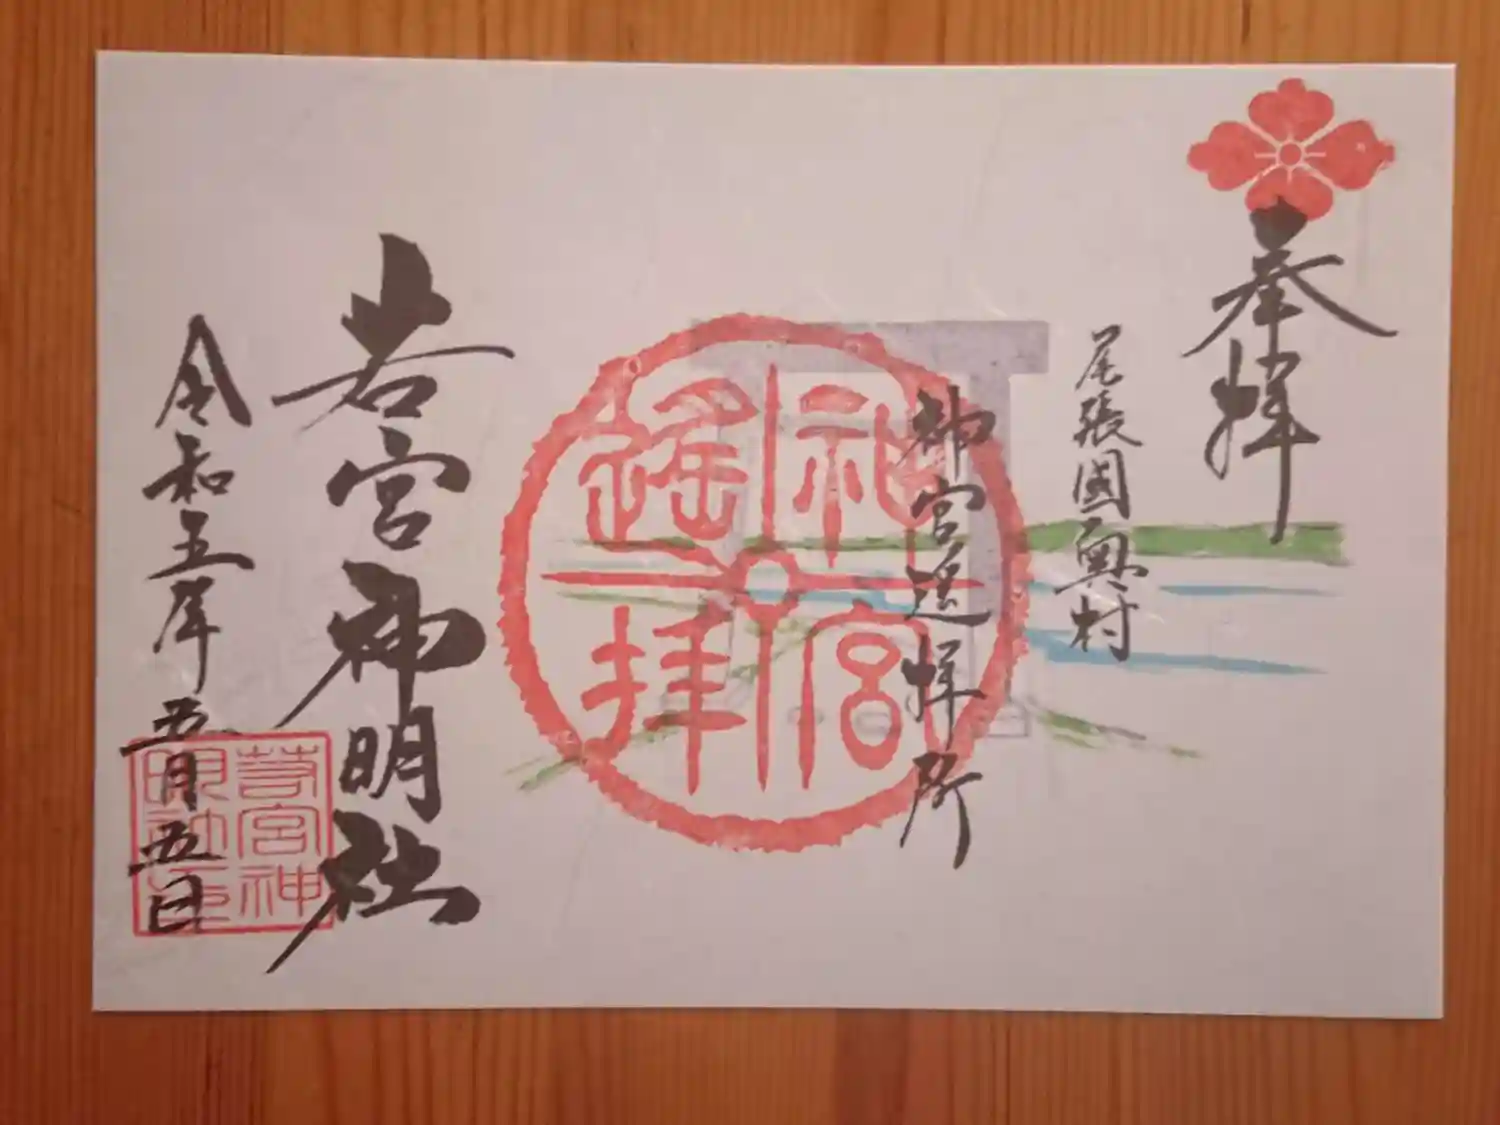 奉拝
尾張國奥村
神宮遥拝所
神宮遙拝
若宮神明社
令和五年五月五日
若宮神明社印